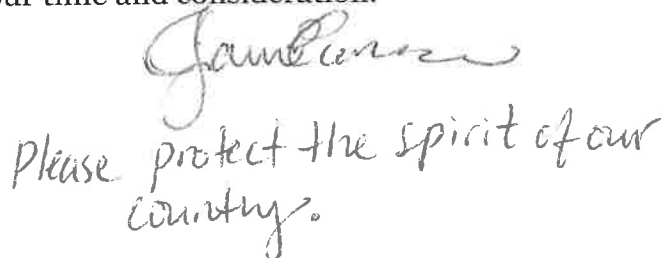 our time and consideration.
Please protect the spirit of our
country.